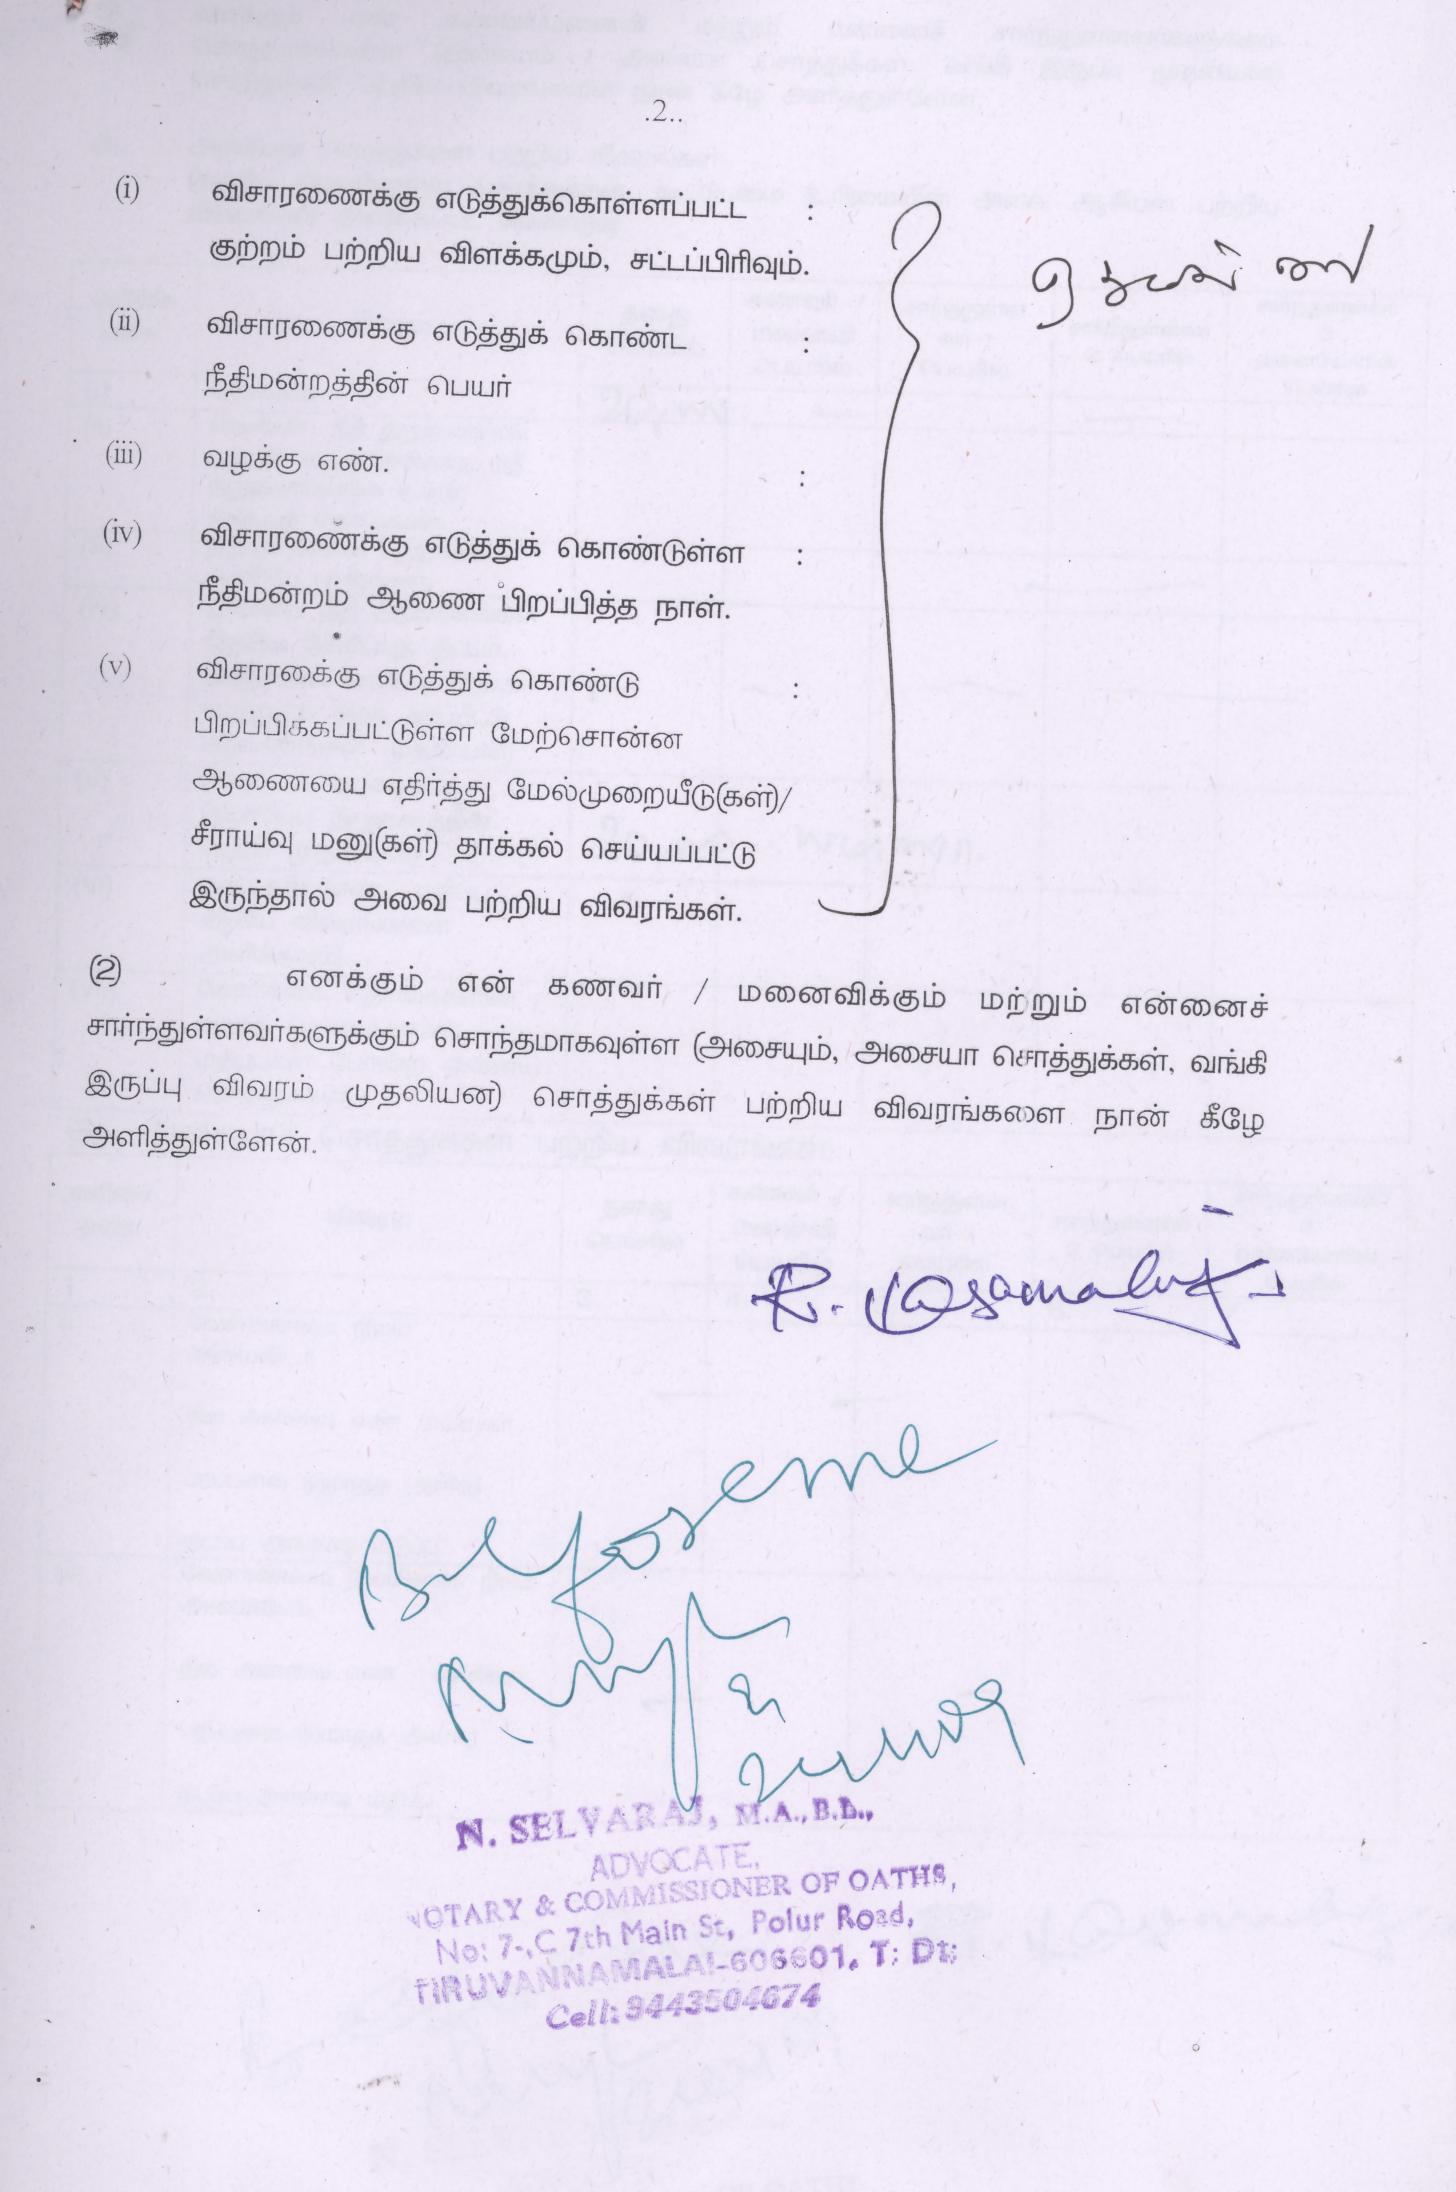 .2..
(i) விசாரணைக்கு எடுத்துக்கொள்ளப்பட்ட :
குற்றம் பற்றிய விளக்கமும், சட்டப்பிரிவும்.
(ii) விசாரணைக்கு எடுத்துக் கொண்ட :
நீதிமன்றத்தின் பெயர்
(iii) வழக்கு எண். :
(iv) விசாரணைக்கு எடுத்துக் கொண்டுள்ள :
நீதிமன்றம் ஆணை பிறப்பித்த நாள்.
(v) விசாரகைக்கு எடுத்துக் கொண்டு :
பிறப்பிக்கப்பட்டுள்ள மேற்சொன்ன
ஆணையை எதிர்த்து மேல்முறையீடு(கள்)/
சீராய்வு மனு(கள்) தாக்கல் செய்யப்பட்டு
இருந்தால் அவை பற்றிய விவரங்கள்.
(2) எனக்கும் என் கணவர் / மனைவிக்கும் மற்றும் என்னைச்
சார்ந்துள்ளவர்களுக்கும் சொந்தமாகவுள்ள (அசையும், அசையா சொத்துக்கள், வங்கி
இருப்பு விவரம் முதலியன) சொத்துக்கள் பற்றிய விவரங்களை நான் கீழே
அளித்துள்ளேன்.
Before me
N. SELVARAJ, M.A.,B.L.,
ADVOCATE,
NOTARY & COMMISSIONER OF OATHS,
No: 7-,C 7th Main St, Polur Road,
TIRUVANNAMALAI-606601. T: Dt:
Cell: 9443504674